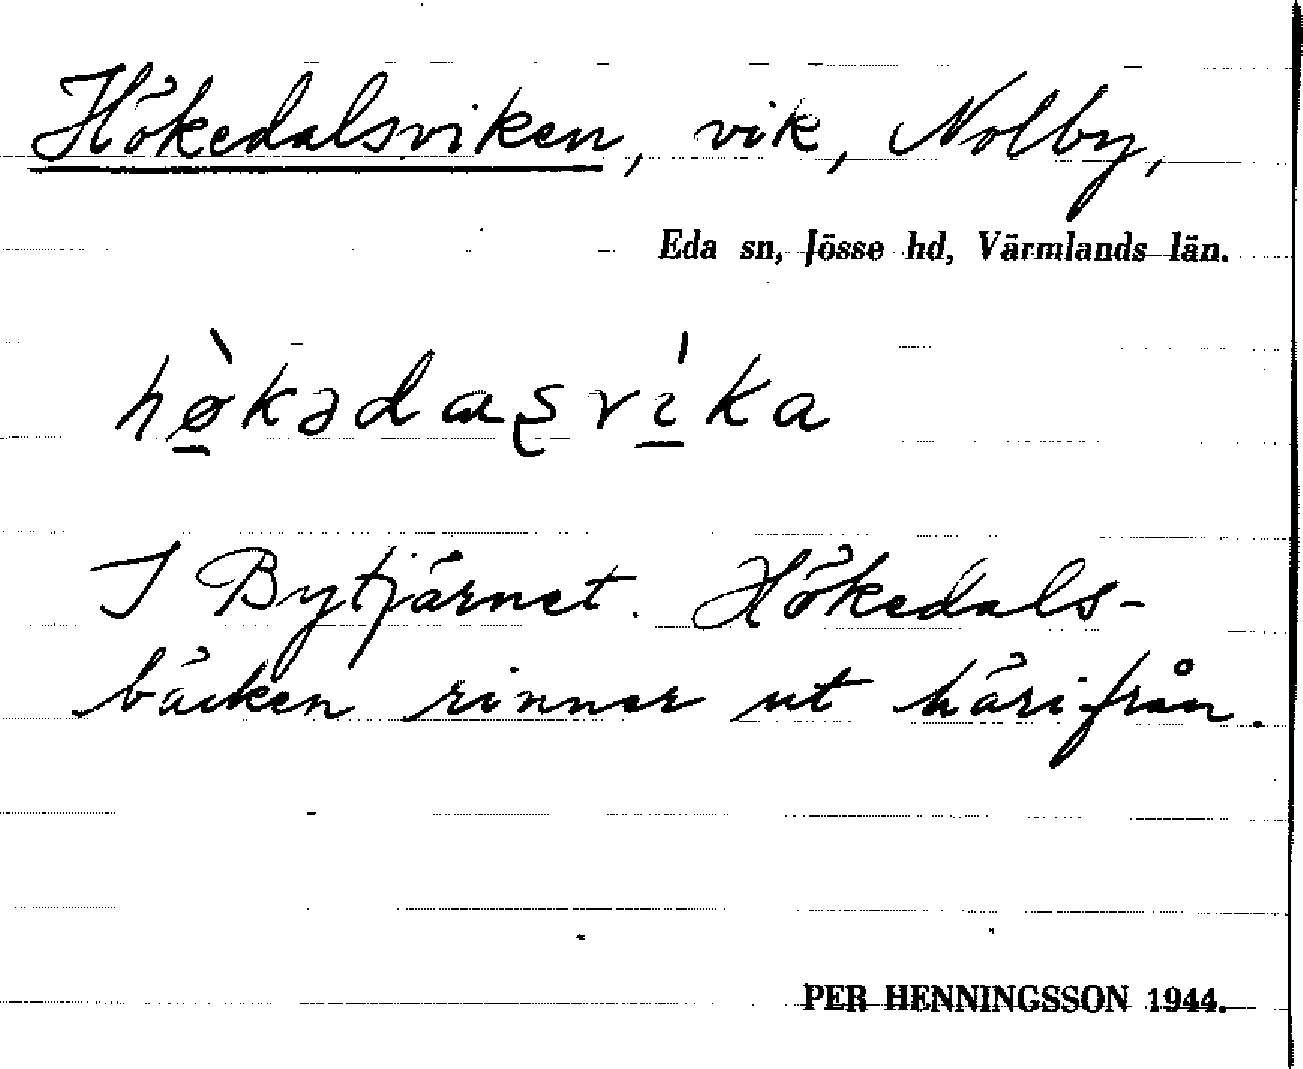 Hökedalsviken, vik, Nolby,
Eda sn, Jösse hd, Värmlands län.
hø̠̀kədaʂví̠ka
I Bytjärnet. Hökedals-
bäcken rinner ut härifrån.
PER HENNINGSSON 1944.